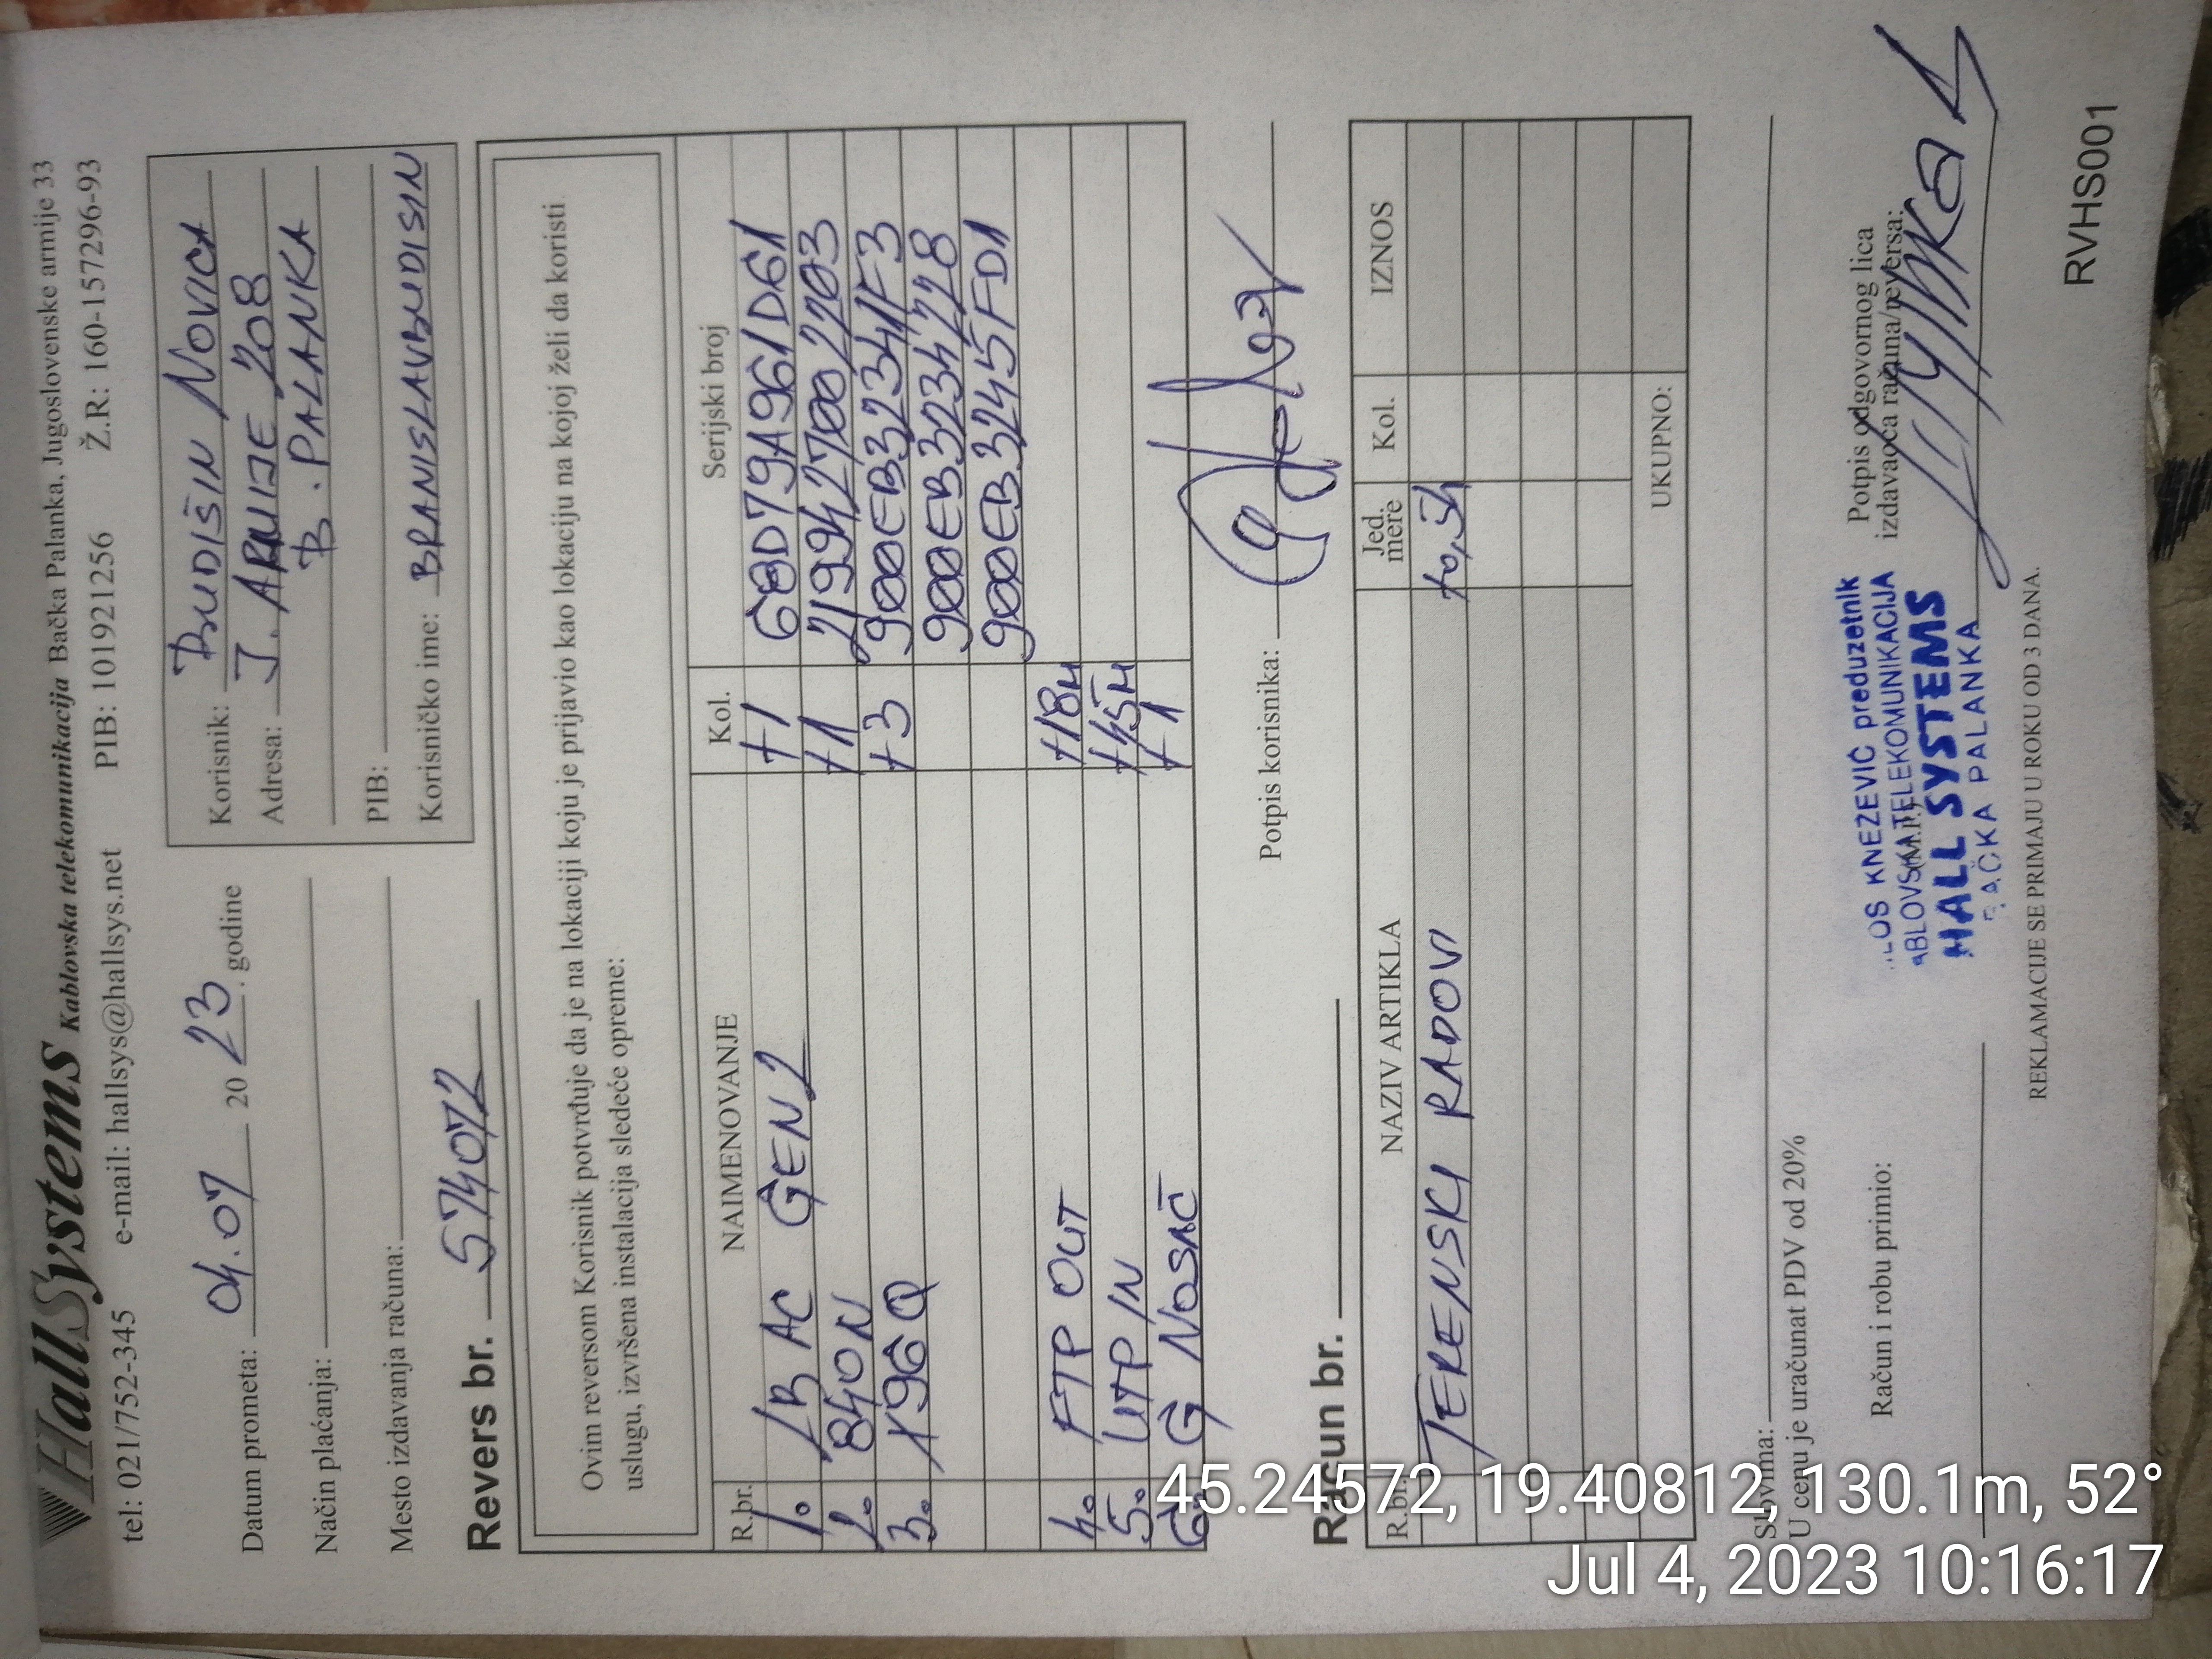 HallSystems Kablovska telekomunikacija Bačka Palanka, Jugoslovenske armije 33
tel: 021/752-345 e-mail: hallsys@hallsys.net PIB: 101921256 Ž.R: 160-157296-93
Datum prometa: 04.07 2023. godine
Način plaćanja:
Mesto izdavanja računa:
Korisnik: BUDIŠIN NOVICA
Adresa: J. ARMIJE 208
B. PALANKA
PIB:
Korisničko ime: BRANISLAVBUDISIN
Revers br. 574072
Ovim reversom Korisnik potvrđuje da je na lokaciji koju je prijavio kao lokaciju na kojoj želi da koristi
uslugu, izvršena instalacija sledeće opreme:
R.br. NAIMENOVANJE Kol. Serijski broj
1. LB AC GEN2 +1 68D79A961D61
2. 840N +1 2199427002203
3. X96Q +3 900EB32341F3
900EB3234228
900EB3245FD1
4. FTP OUT +18M
5. UTP IN +45M
6. G NOSAČ +1
Potpis korisnika:
Račun br.
R.br. NAZIV ARTIKLA Jed. mere Kol. IZNOS
TERENSKI RADOVI +0,5h
UKUPNO:
Slovima:
U cenu je uračunat PDV od 20%
Račun i robu primio:
(M.P.)
KNEZEVIĆ preduzetnik
TELEKOMUNIKACIJA
HALL SYSTEMS
PALANKA
Potpis odgovornog lica
izdavaoca računa/reversa:
REKLAMACIJE SE PRIMAJU U ROKU OD 3 DANA.
RVHS001
45.24572, 19.40812, 130.1m, 52°
Jul 4, 2023 10:16:17